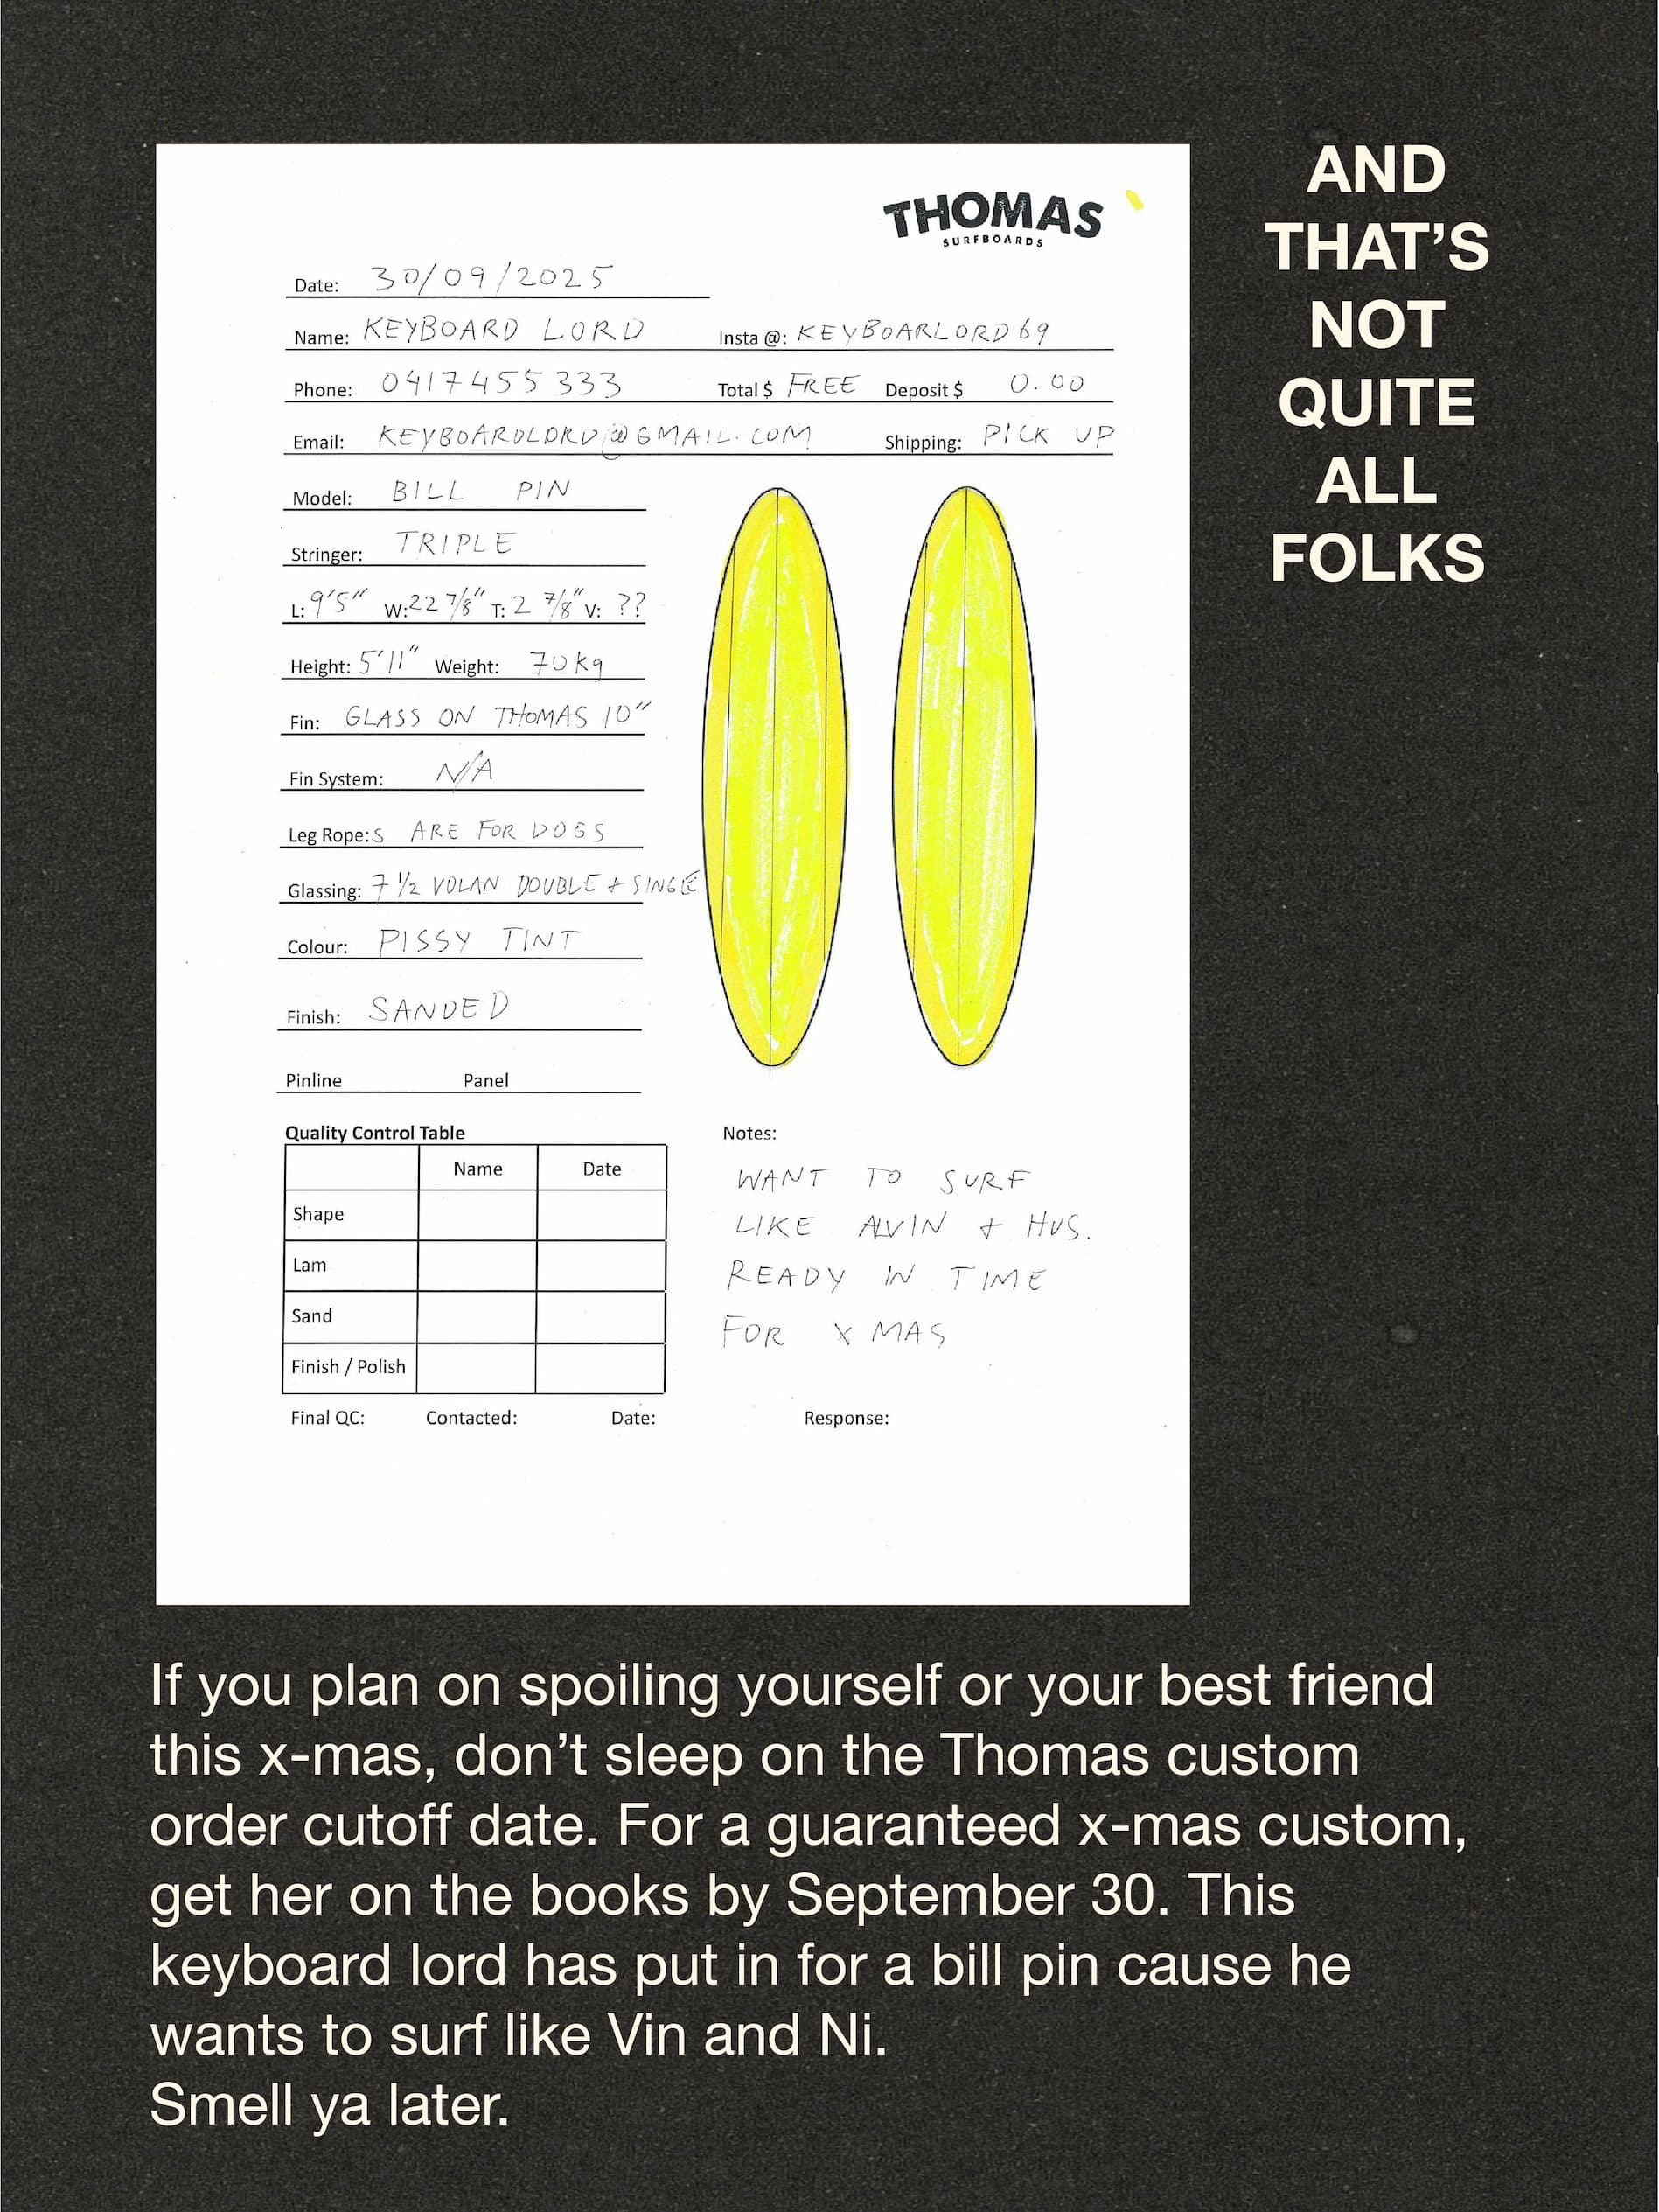 AND
THAT'S
NOT
QUITE
ALL
FOLKS
THOMAS
SURFBOARDS
Date: 30/09/2025
Name: KEYBOARD LORD Insta @: KEYBOARLORD69
Phone: 0417455333 Total $ FREE Deposit $ 0.00
Email: KEYBOARDLORD@GMAIL.COM Shipping: PICK UP
Model: BILL PIN
Stringer: TRIPLE
L: 9'5" W: 22 7/8" T: 2 7/8" V: ??
Height: 5'11" Weight: 70kg
Fin: GLASS ON THOMAS 10"
Fin System: N/A
Leg Rope: S ARE FOR DOGS
Glassing: 7 1/2 VOLAN DOUBLE + SINGLE
Colour: PISSY TINT
Finish: SANDED
Pinline Panel
Quality Control Table
Name Date
Shape
Lam
Sand
Finish / Polish
Notes:
WANT TO SURF
LIKE ALVIN + HUS.
READY IN TIME
FOR X MAS
Final QC: Contacted: Date: Response:
If you plan on spoiling yourself or your best friend
this x-mas, don't sleep on the Thomas custom
order cutoff date. For a guaranteed x-mas custom,
get her on the books by September 30. This
keyboard lord has put in for a bill pin cause he
wants to surf like Vin and Ni.
Smell ya later.